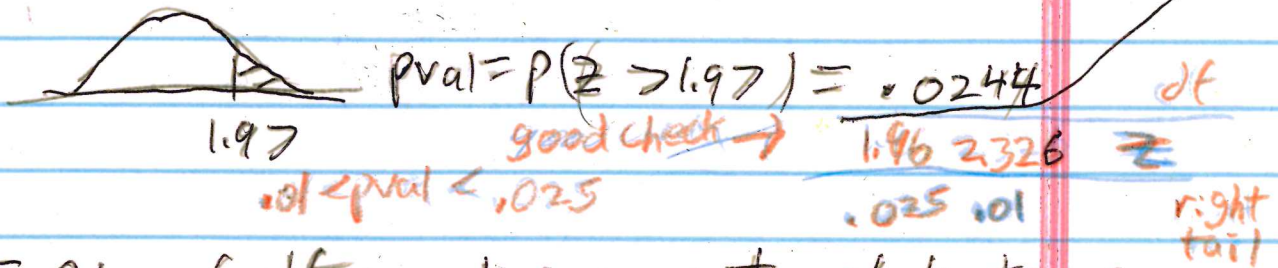 pval = P(Z > 1.97) = .0244 df
1.97 good check → 1.96 2.326 Z
.01 < pval < .025 .025 .01 right
tail